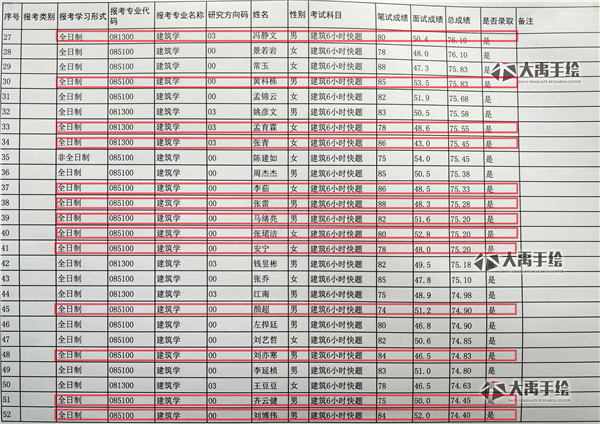 序号 报考类别 报考学习形式 报考专业代码 报考专业名称 研究方向码 姓名 性别 考试科目 笔试成绩 面试成绩 总成绩 是否录取 备注
27 全日制 081300 建筑学 03 冯静文 男 建筑6小时快题 80 50.4 76.10 是
28 全日制 085100 建筑学 00 景若岩 女 建筑6小时快题 78 48.0 76.10 是
29 全日制 085100 建筑学 00 常玉 女 建筑6小时快题 88 47.3 75.83 是
30 全日制 085100 建筑学 00 黄科栋 男 建筑6小时快题 85 53.5 75.83 是
31 全日制 085100 建筑学 00 孟锦云 女 建筑6小时快题 82 51.9 75.68 是
32 全日制 081300 建筑学 03 姚彦文 男 建筑6小时快题 83 50.5 75.58 是
33 全日制 081300 建筑学 03 孟育霖 女 建筑6小时快题 78 48.6 75.55 是
34 全日制 081300 建筑学 03 张青 女 建筑6小时快题 86 43.0 75.45 是
35 非全日制 085100 建筑学 00 陈建如 女 建筑6小时快题 75 54.0 75.45 是
36 全日制 085100 建筑学 00 周杰杰 男 建筑6小时快题 85 50.5 75.38 是
37 全日制 085100 建筑学 00 李茹 女 建筑6小时快题 86 48.5 75.33 是
38 全日制 085100 建筑学 00 张雷 男 建筑6小时快题 88 48.3 75.28 是
39 全日制 085100 建筑学 00 马绪亮 男 建筑6小时快题 82 51.6 75.20 是
40 全日制 085100 建筑学 00 张珺洁 女 建筑6小时快题 80 52.8 75.20 是
41 全日制 081300 建筑学 03 安宁 女 建筑6小时快题 78 48.0 75.20 是
42 全日制 081300 建筑学 03 钱昱彬 男 建筑6小时快题 82 49.5 75.18 是
43 全日制 085100 建筑学 00 张乔 女 建筑6小时快题 85 47.8 75.10 是
44 全日制 081300 建筑学 03 江南 男 建筑6小时快题 75 48.9 74.98 是
45 全日制 085100 建筑学 00 颜超 男 建筑6小时快题 74 51.2 74.90 是
46 全日制 085100 建筑学 00 左捍廷 男 建筑6小时快题 80 46.8 74.90 是
47 全日制 085100 建筑学 00 刘艺哲 女 建筑6小时快题 82 50.6 74.85 是
48 全日制 085100 建筑学 00 刘亦寒 男 建筑6小时快题 84 46.5 74.83 是
49 全日制 085100 建筑学 00 李延桢 男 建筑6小时快题 83 51.0 74.80 是
50 全日制 081300 建筑学 03 王豆豆 女 建筑6小时快题 78 46.5 74.63 是
51 全日制 085100 建筑学 00 齐云健 男 建筑6小时快题 75 50.0 74.45 是
52 全日制 085100 建筑学 00 刘博伟 男 建筑6小时快题 84 52.0 74.40 是
大禹手绘
大禹手绘
大禹手绘